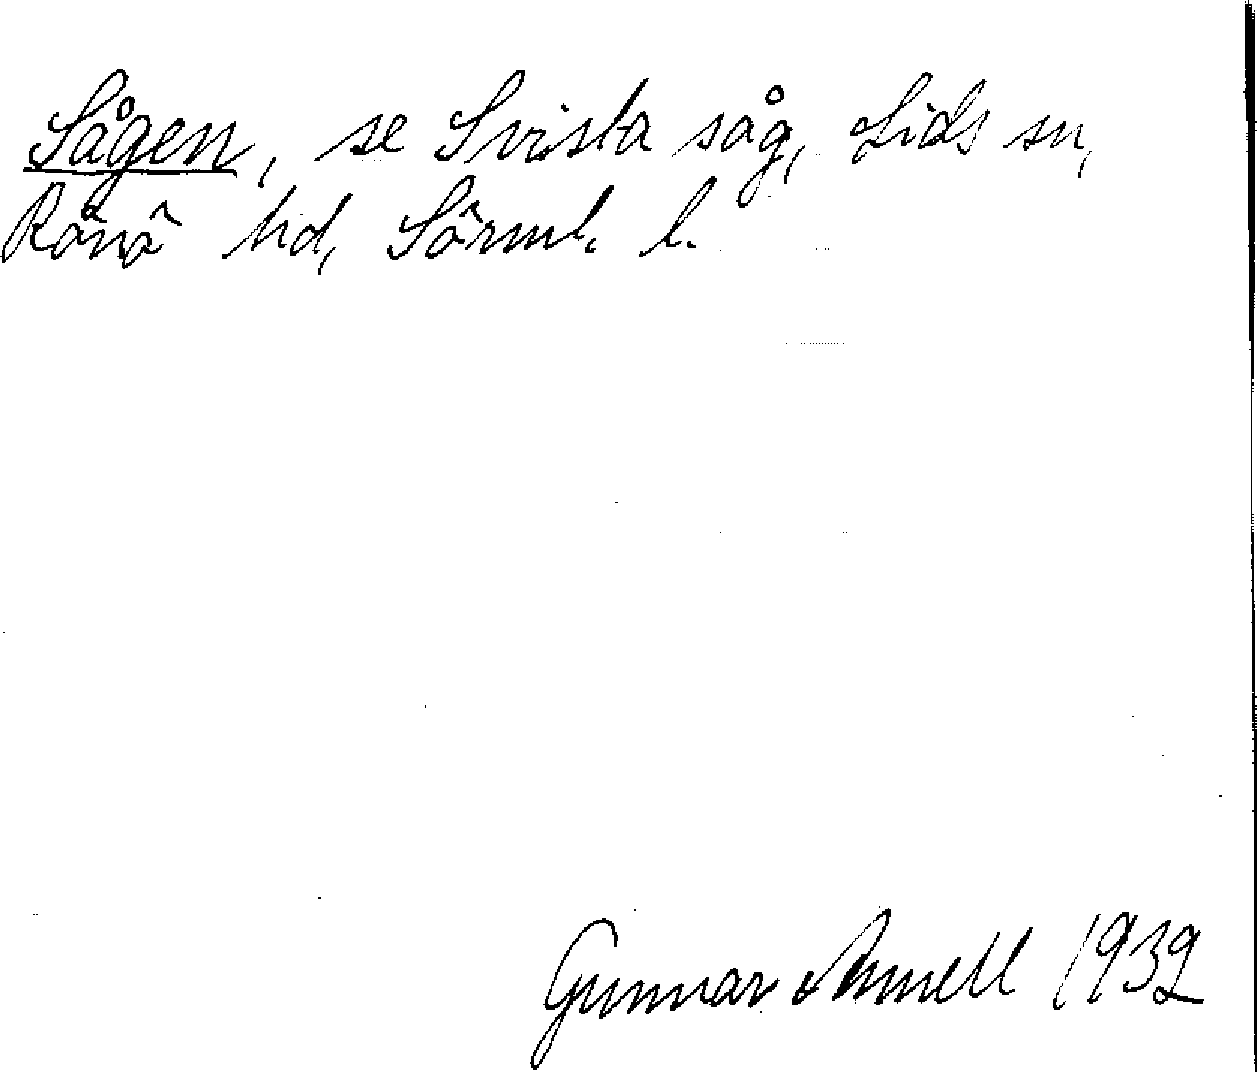 Sågen, se Svista såg, Lids sn,
Rönö hd, Sörml. l.
Gunnar Arnell 1932